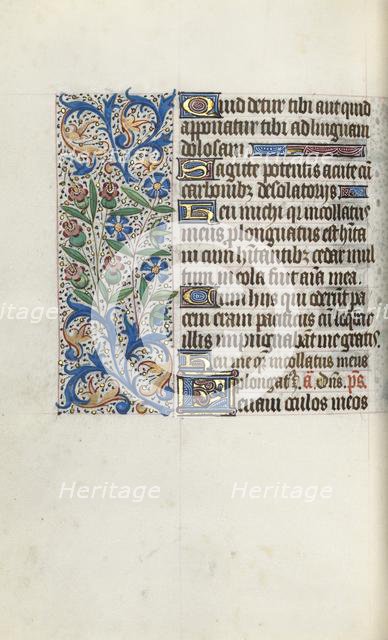 Quid detur tibi aut quid
apponatur tibi ad linguam
dolosam
Sagitte potentis acute cū
carbonibꝫ desolatorijs
Heu michi qꝛ incollatus
meus ꝓlongatus est hita
ui cum hītantibꝫ cedar mul
tum incola fuit aīa mea.
Cum hijs qui oderūt pa
cem eram pacificus cū loq̄bar
illis impugnabāt me gratis.
Heu me qꝛ incollatus meus
ꝓlongatꝰ. ā. dn̄s. p̄s.
Leuaui oculos meos
Heritage
Heritage